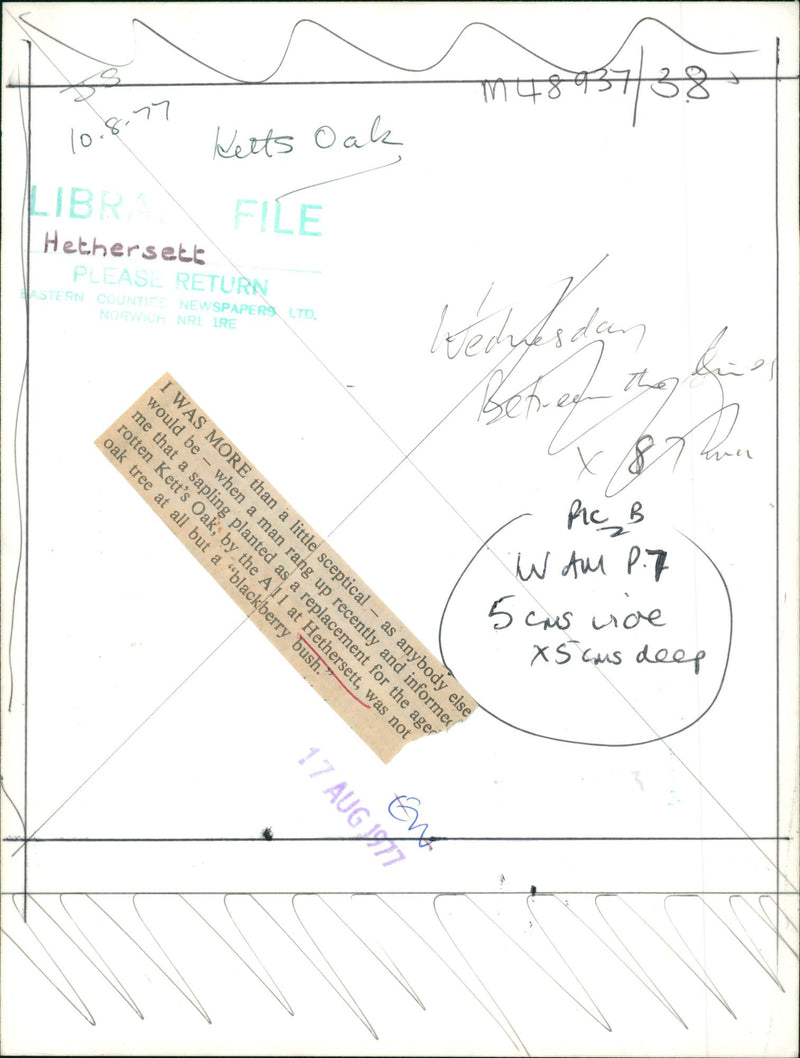 M48937/38
10.8.77
Ketts Oak
LIBRA FILE
Hethersett
PLEASE RETURN
EASTERN COUNTIES NEWSPAPERS LTD.
NORWICH NR1 1RE
Wednesday
Between the lines
x 87
PIC B
W AM P.7
5 cms wide
x5 cms deep
I WAS MORE than a little sceptical – as anybody else
would be – when a man rang up recently and informed
me that a sapling planted as a replacement for the aged
rotten Kett's Oak, by the A11 at Hethersett, was not
oak tree at all but a "blackberry bush."
17 AUG 1977